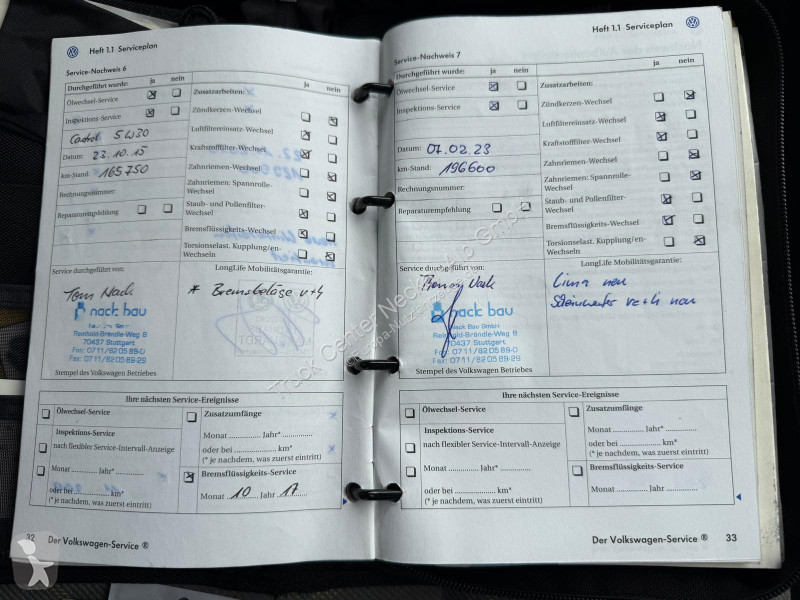 Heft 1.1 Serviceplan
Service-Nachweis 6
Durchgeführt wurde: ja nein
Ölwechsel-Service
Inspektions-Service
Castrol 5W30
Datum: 23.10.15
km-Stand: 165750
Rechnungsnummer:
Reparaturempfehlung
ja nein
Zusatzarbeiten:
Zündkerzen-Wechsel
Luftfiltereinsatz-Wechsel
Kraftstofffilter-Wechsel
Zahnriemen-Wechsel
Zahnriemen: Spannrolle-
Wechsel
Staub- und Pollenfilter-
Wechsel
Bremsflüssigkeits-Wechsel
Torsionselast. Kupplung/en-
Wechseln
Service durchgeführt von:
Tom Nack
nack bau
Reinhold-Brändle-Weg 8
70437 Stuttgart
Fon: 0711/82 05 89-0
Fax: 0711/82 05 89-29
Stempel des Volkswagen Betriebes
LongLife Mobilitätsgarantie:
* Bremsbeläge v+h
Ihre nächsten Service-Ereignisse
Ölwechsel-Service
Inspektions-Service
nach flexibler Service-Intervall-Anzeige
Monat ............ Jahr* ............
oder bei ............ km*
(* je nachdem, was zuerst eintritt)
Zusatzumfänge
Monat ............ Jahr* ............
oder bei ............ km*
(* je nachdem, was zuerst eintritt)
Bremsflüssigkeits-Service
Monat 10 Jahr 17
32 Der Volkswagen-Service ®
Heft 1.1 Serviceplan
Service-Nachweis 7
Durchgeführt wurde: ja nein
Ölwechsel-Service
Inspektions-Service
Datum: 07.02.23
km-Stand: 196600
Rechnungsnummer:
Reparaturempfehlung
ja nein
Zusatzarbeiten:
Zündkerzen-Wechsel
Luftfiltereinsatz-Wechsel
Kraftstofffilter-Wechsel
Zahnriemen-Wechsel
Zahnriemen: Spannrolle-
Wechsel
Staub- und Pollenfilter-
Wechsel
Bremsflüssigkeits-Wechsel
Torsionselast. Kupplung/en-
Wechseln
Service durchgeführt von:
Nack
nack bau
Nack Bau GmbH
Reinhold-Brändle-Weg 8
70437 Stuttgart
Fon: 0711/82 05 89-0
Fax: 0711/82 05 89-29
Stempel des Volkswagen Betriebes
LongLife Mobilitätsgarantie:
neu
neu
Ihre nächsten Service-Ereignisse
Ölwechsel-Service
Inspektions-Service
nach flexibler Service-Intervall-Anzeige
Monat ............ Jahr* ............
oder bei ............ km*
(* je nachdem, was zuerst eintritt)
Zusatzumfänge
Monat ............ Jahr* ............
oder bei ............ km*
(* je nachdem, was zuerst eintritt)
Bremsflüssigkeits-Service
Monat ............ Jahr ............
Der Volkswagen-Service ® 33